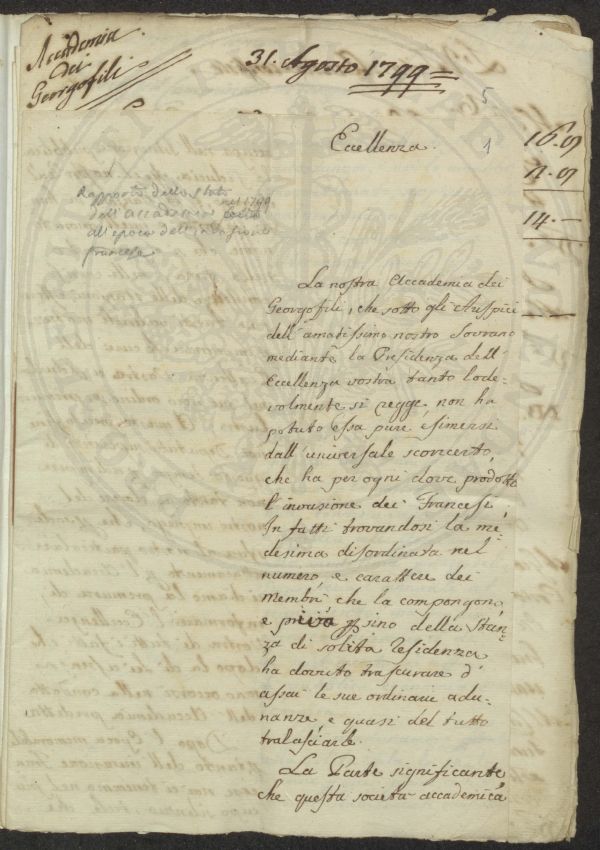 Accademia
dei
Georgofili.
31. Agosto 1799=
5
Eccellenza.
1
16.
2.
14.—
Rapporto dello stato
dell'accademia nel 1799
all'epoca dell'invasione
francese
La nostra Accademia dei
Georgofili, che sotto gli Auspici
dell'amatissimo nostro Sovrano
mediante la Presidenza dell'
Eccellenza vostra tanto lode-
volmente si regge, non ha
potuto Essa pure esimersi
dall'universale sconcerto,
che ha per ogni dove prodotto
l'invasione dei Francesi.
In fatti trovandosi la me-
desima disordinata nel
numero, e carattere dei
membri che la compongono,
e priva sino della Stan-
za di solita residenza
ha dovuto trascurare d'
assai le sue ordinarie adu-
nanze, e quasi del tutto
tralasciarle.
La Parte significante,
che questa società accademica